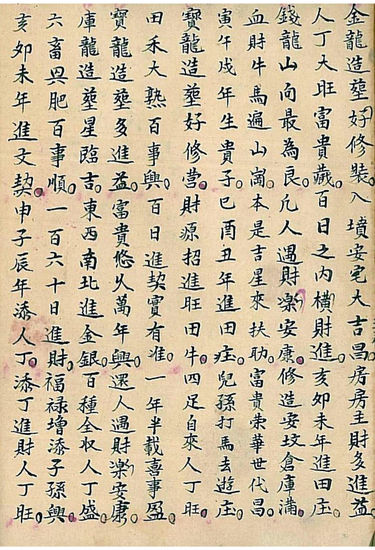 金龍造塟好修裝。入墳安宅大吉昌。房房主財多進益。
人丁大旺富貴藏。百日之內橫財進。亥卯未年進田庄。
錢龍山向最為良。凡人遇財樂安康。修造安坟倉庫滿。
血財牛馬遍山崗。本是吉星來扶助。富貴荣華世代昌。
寅午戌年生貴子。巳酉丑年進田庄。兒孫打馬去遊庄。
寳龍造塟好修营。財源招進旺田牛。四足自來人丁旺。
田禾大熟百事興。百日進契寳有准。一年半載喜事盈。
寳龍造塟多進益。富貴悠久萬年興。選人遇財樂安康。
庫龍造塟星臨吉。東西南北進金銀。百種全収人丁盛。
六畜興肥百事順。一百六十日進財。福禄增添子孫興。
亥卯未年進文契。申子辰年添人丁。添丁進財人丁旺。